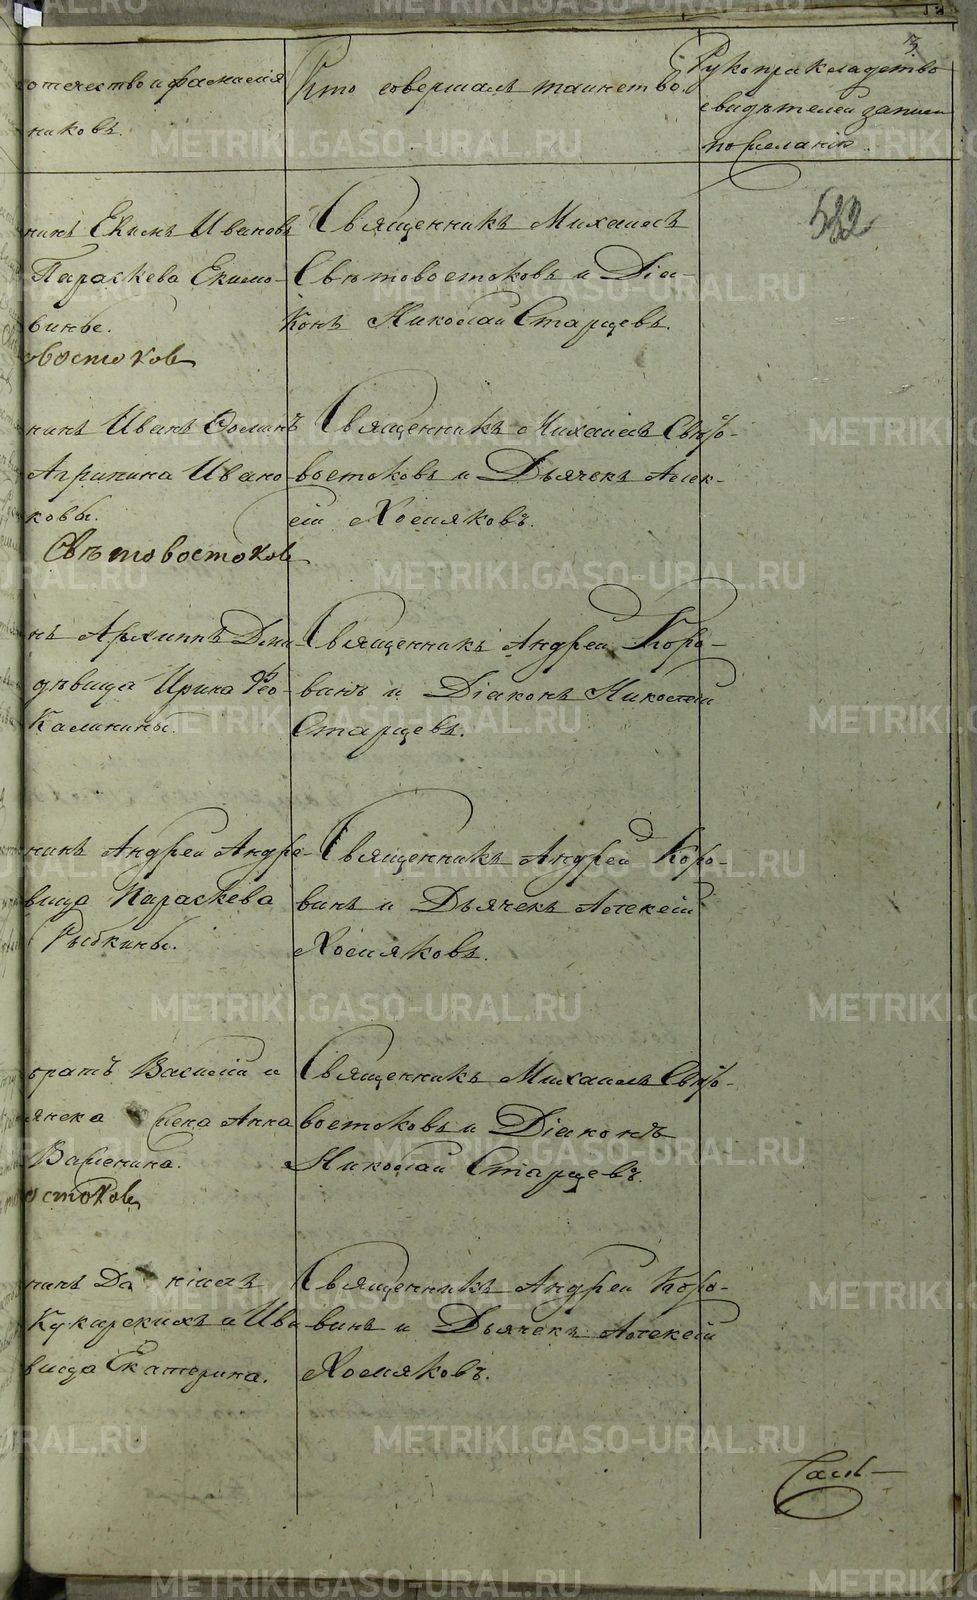 отечество и фамилія
никовъ.
Кто совершалъ таинство.
Рукоприкладство
свидѣтелей записи
по желанію.
3.
582
нинъ Екимъ Ивановъ
Параскева Екимо-
вины.
овостоков
Священникъ Михаилъ
Свѣтовостоковъ и Діа-
конъ Николай Старцевъ.
нинъ Иванъ Ѳоминъ
Агрипина Ивано-
ковы.
Свѣтовостоков
Священникъ Михаилъ Свѣто-
востоковъ и Дьячекъ Алек-
сій Хомяковъ.
нъ Архиппъ Дми-
дѣвица Ирина Ѳео-
Калинины.
Священникъ Андрей Коро-
винъ и Діаконъ Николай
Старцевъ.
нинъ Андрей Андре-
вица Параскева
Рыбкины.
Священникъ Андрей Коро-
винъ и Дьячекъ Алексій
Хомяковъ.
братъ Василій и
янска жена Анна
остоков
Священникъ Михаилъ Свѣто-
востоковъ и Діаконъ
Николай Старцевъ.
нинъ Даніилъ
Кукарскихъ и Ива
вица Екатерина.
Священникъ Андрей Коро-
винъ и Дьячекъ Алексій
Хомяковъ.
METRIKI.GASO-URAL.RU